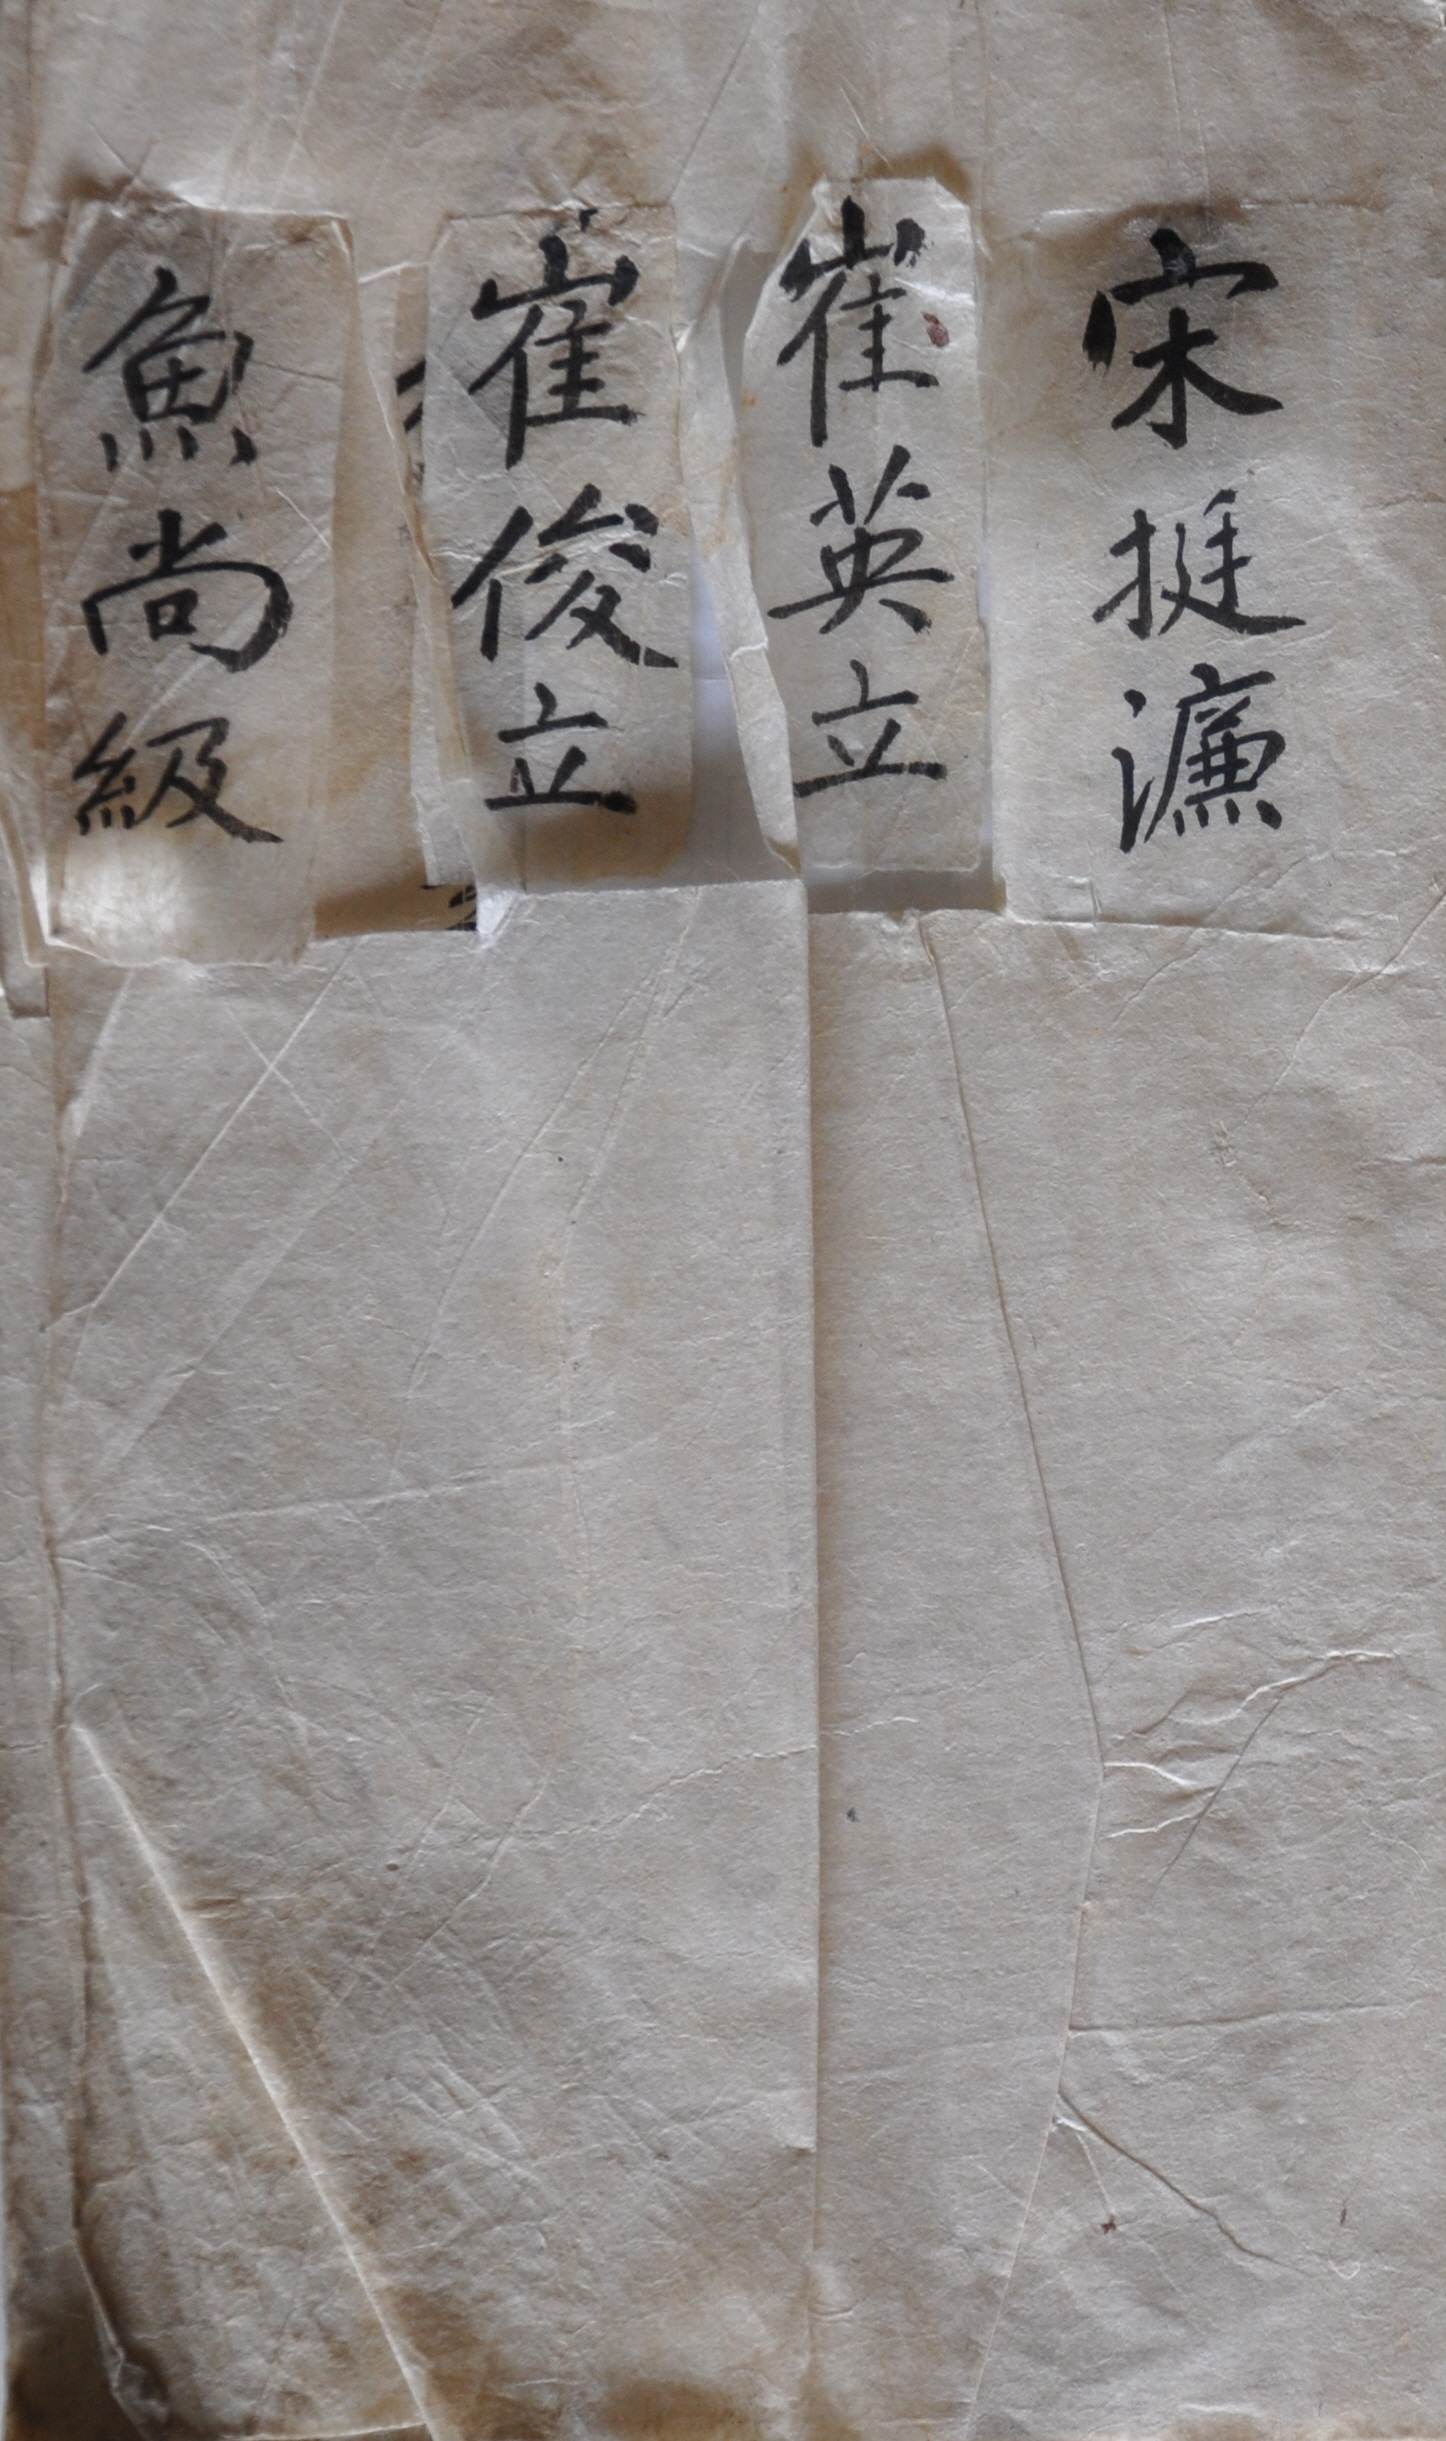 宋挺濂
崔英立
崔俊立
魚尚級